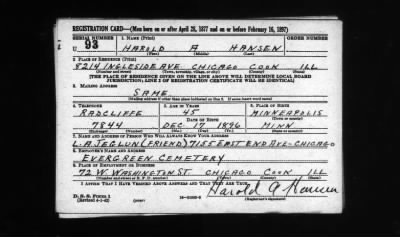 REGISTRATION CARD—(Men born on or after April 28, 1877 and on or before February 16, 1897)
SERIAL NUMBER 1. NAME (Print) ORDER NUMBER
U 93 HAROLD A HANSEN
(First) (Middle) (Last)
2. PLACE OF RESIDENCE (Print)
8214 INGLESIDE AVE CHICAGO COOK ILL
(Number and street) (Town, township, village, or city) (County) (State)
[THE PLACE OF RESIDENCE GIVEN ON THE LINE ABOVE WILL DETERMINE LOCAL BOARD
JURISDICTION; LINE 2 OF REGISTRATION CERTIFICATE WILL BE IDENTICAL]
3. MAILING ADDRESS
SAME
[Mailing address if other than place indicated on line 2. If same insert word same]
4. TELEPHONE 5. AGE IN YEARS 6. PLACE OF BIRTH
RADCLIFFE 45 MINNEAPOLIS
DATE OF BIRTH (Town or county)
7844 DEC 17 1896 MINN
(Exchange) (Number) (Mo.) (Day) (Yr.) (State or country)
7. NAME AND ADDRESS OF PERSON WHO WILL ALWAYS KNOW YOUR ADDRESS
L.A. JEGLUN (FRIEND) 7155 EAST END AVE - CHICAGO
8. EMPLOYER'S NAME AND ADDRESS
EVERGREEN CEMETERY
9. PLACE OF EMPLOYMENT OR BUSINESS
72 W. WASHINGTON ST CHICAGO COOK ILL
(Number and street or R. F. D. number) (Town) (County) (State)
I AFFIRM THAT I HAVE VERIFIED ABOVE ANSWERS AND THAT THEY ARE TRUE.
Harold A Hansen
D. S. S. Form 1
(Revised 4-1-42) (Registrant's signature)